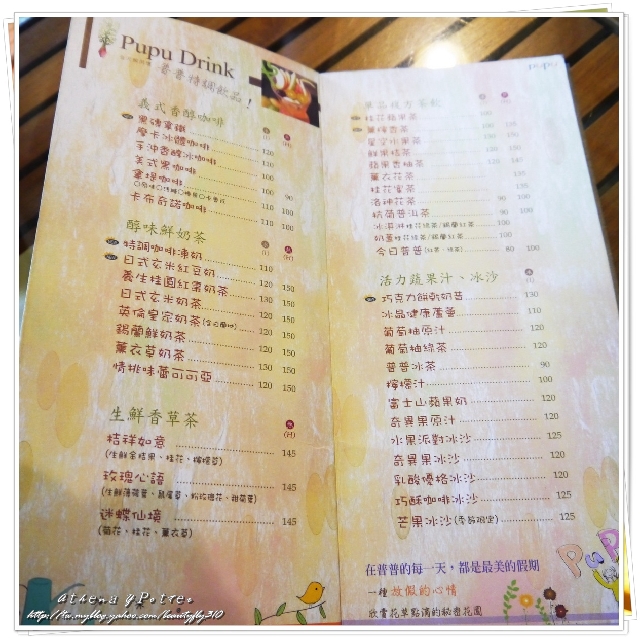 Pupu Drink
普普特調飲品！
義式香醇咖啡
黑磚拿鐵 120
摩卡冰醴咖啡 120 100
手沖香醇冰咖啡 110
美式黑咖啡 100
拿堤咖啡 100 90
卡布奇諾咖啡 110 100
醇味鮮奶茶
特調咖啡凍奶 110
日式玄米紅豆奶 120 150
養生桂圓紅棗奶茶 130 150
日式玄米奶茶 120 150
英倫皇家奶茶 120 150
錫蘭鮮奶茶 120 150
薰衣草奶茶 130 150
情挑味蕾可可亞 120 150
生鮮香草茶
(H)
桔祥如意 145
(生鮮金桔果、桂花、檸檬草)
玫瑰心語 145
迷蝶仙境 145
(菊花、桂花、薰衣草)
單品複方茶飲
桂花蘋果茶 100
薰檸香茶 100 135
星空水果茶 100 150
鮮果桔茶 120
蘋果香柚茶 120 140
薰衣花茶 135
桂花蜜茶 135
洛神花茶 90 100
桔菊普洱茶 100
冰淇淋桂花綠茶/錫蘭紅茶 100
奶蓋桂花綠茶/錫蘭紅茶 100
今日普普(紅茶、綠茶) 80 100
活力蔬果汁、冰沙
巧克力餅乾奶昔 130
冰晶健康蘆薈 110
葡萄柚原汁 120
葡萄柚綠茶 120
普普冰茶 90
檸檬汁 100
富士山蘋果奶 120
奇異果原汁 120
水果派對冰沙 125
奇異果冰沙 120
乳酸優格冰沙 120
巧酥咖啡冰沙 125
芒果冰沙(季節限定) 125
在普普的每一天，都是最美的假期
一種 放假的心情
欣賞花草點滴的秘密花園
PuPu
Athena y Potter
http://tw.myblog.yahoo.com/beautyfly310